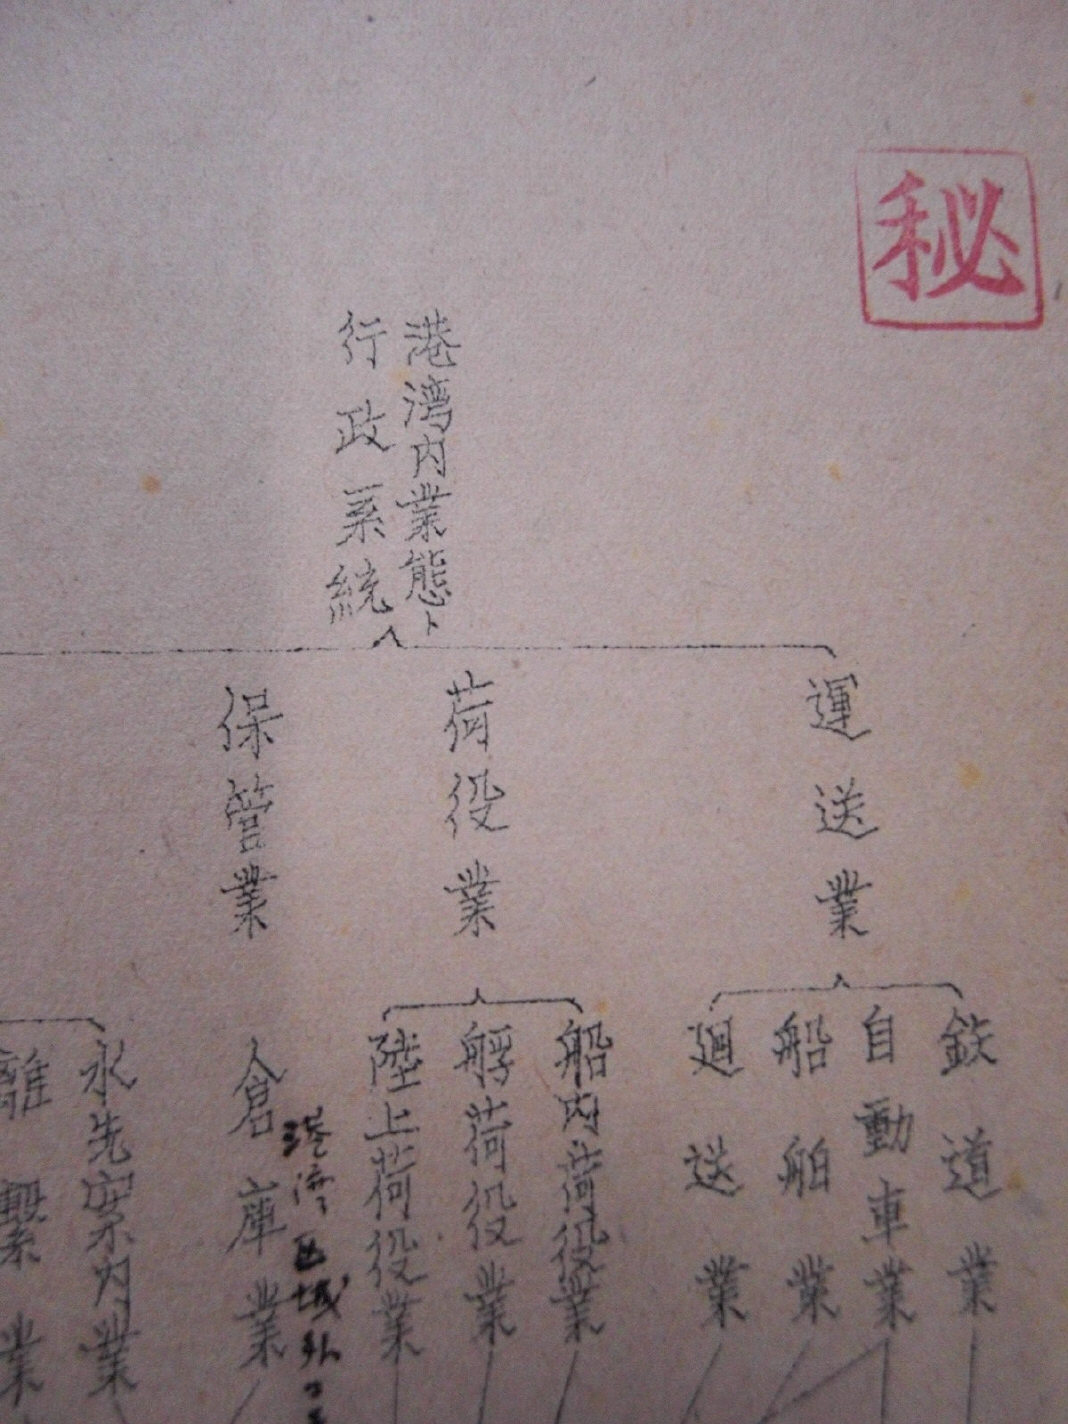 秘
港湾内業態ト
行政系統
運送業
鉄道業
自動車業
船舶業
廻送業
荷役業
船内荷役業
艀荷役業
陸上荷役業
保管業
倉庫業
港湾区域外
水先案内業
離繋業